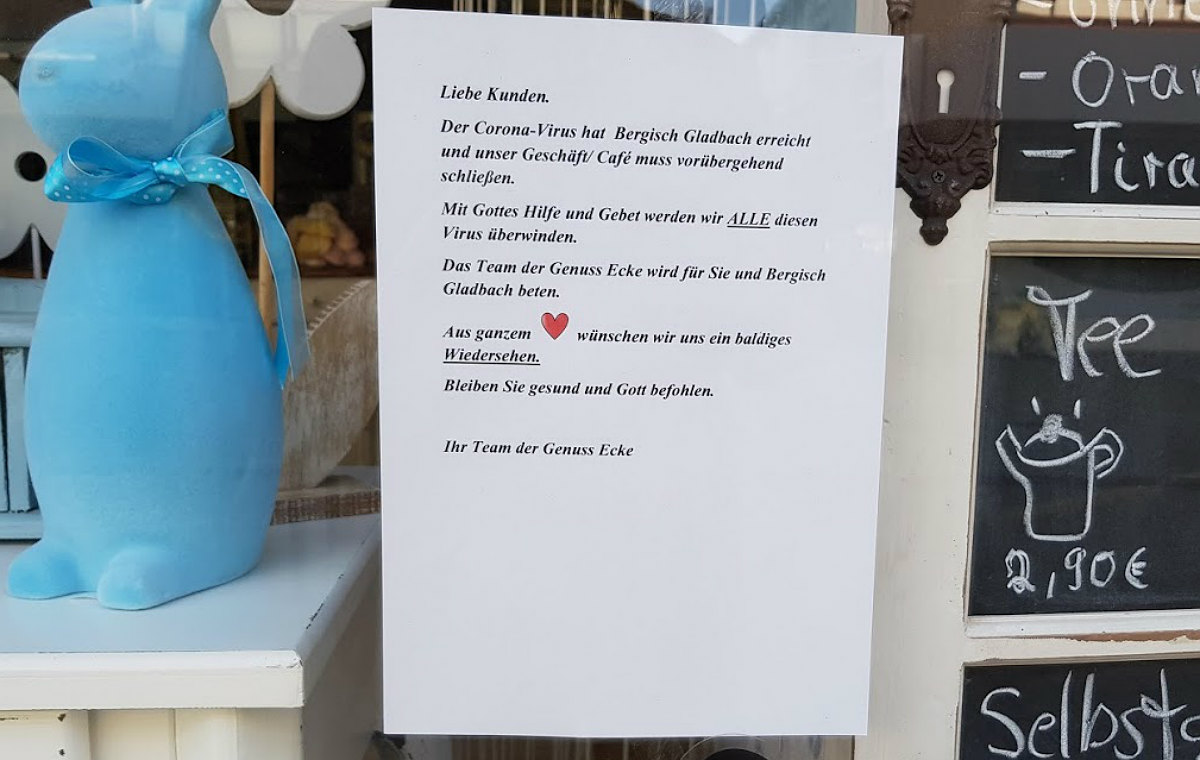 Liebe Kunden.
Der Corona-Virus hat Bergisch Gladbach erreicht
und unser Geschäft/ Café muss vorübergehend
schließen.
Mit Gottes Hilfe und Gebet werden wir ALLE diesen
Virus überwinden.
Das Team der Genuss Ecke wird für Sie und Bergisch
Gladbach beten.
Aus ganzem ❤ wünschen wir uns ein baldiges
Wiedersehen.
Bleiben Sie gesund und Gott befohlen.
Ihr Team der Genuss Ecke
- Oran
- Tira
Tee
2,90€
Selbst